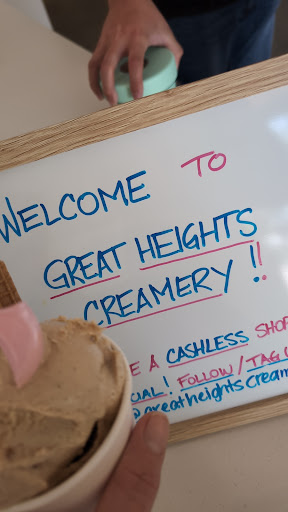 WELCOME TO
GREAT HEIGHTS
CREAMERY !!
E A CASHLESS SHOP
CIAL! FOLLOW/TAG U
@greatheightscream